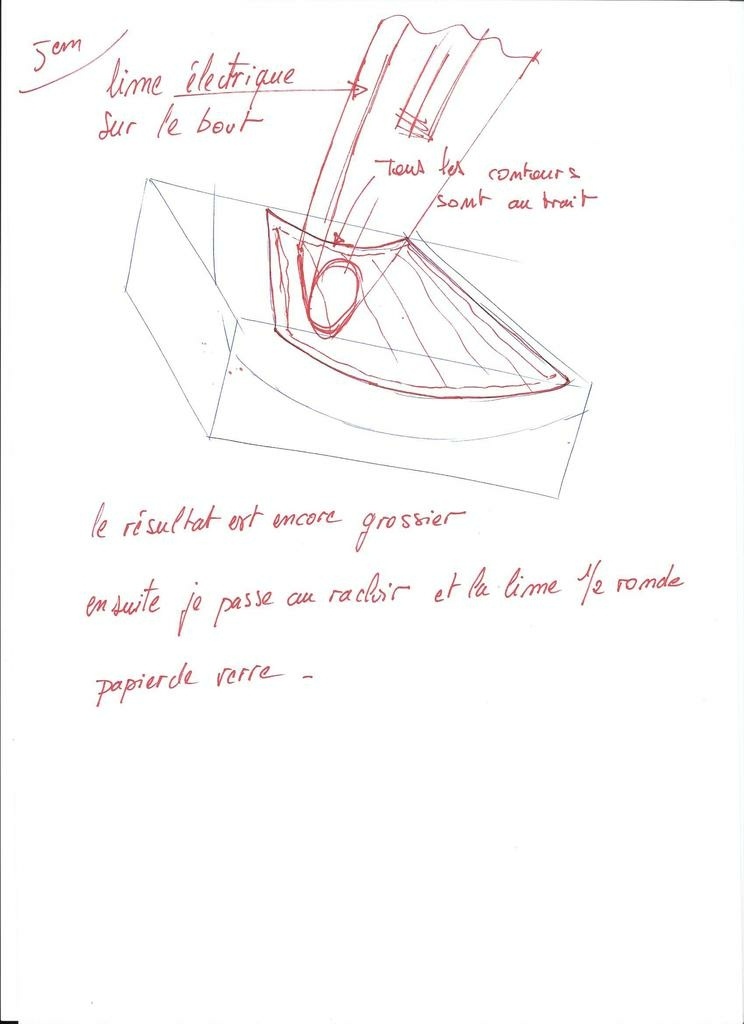 5 cm
lime électrique
sur le bout
Tous les contours
sont au trait
le résultat est encore grossier
ensuite je passe au racloir et la lime 1/2 ronde
papier de verre -